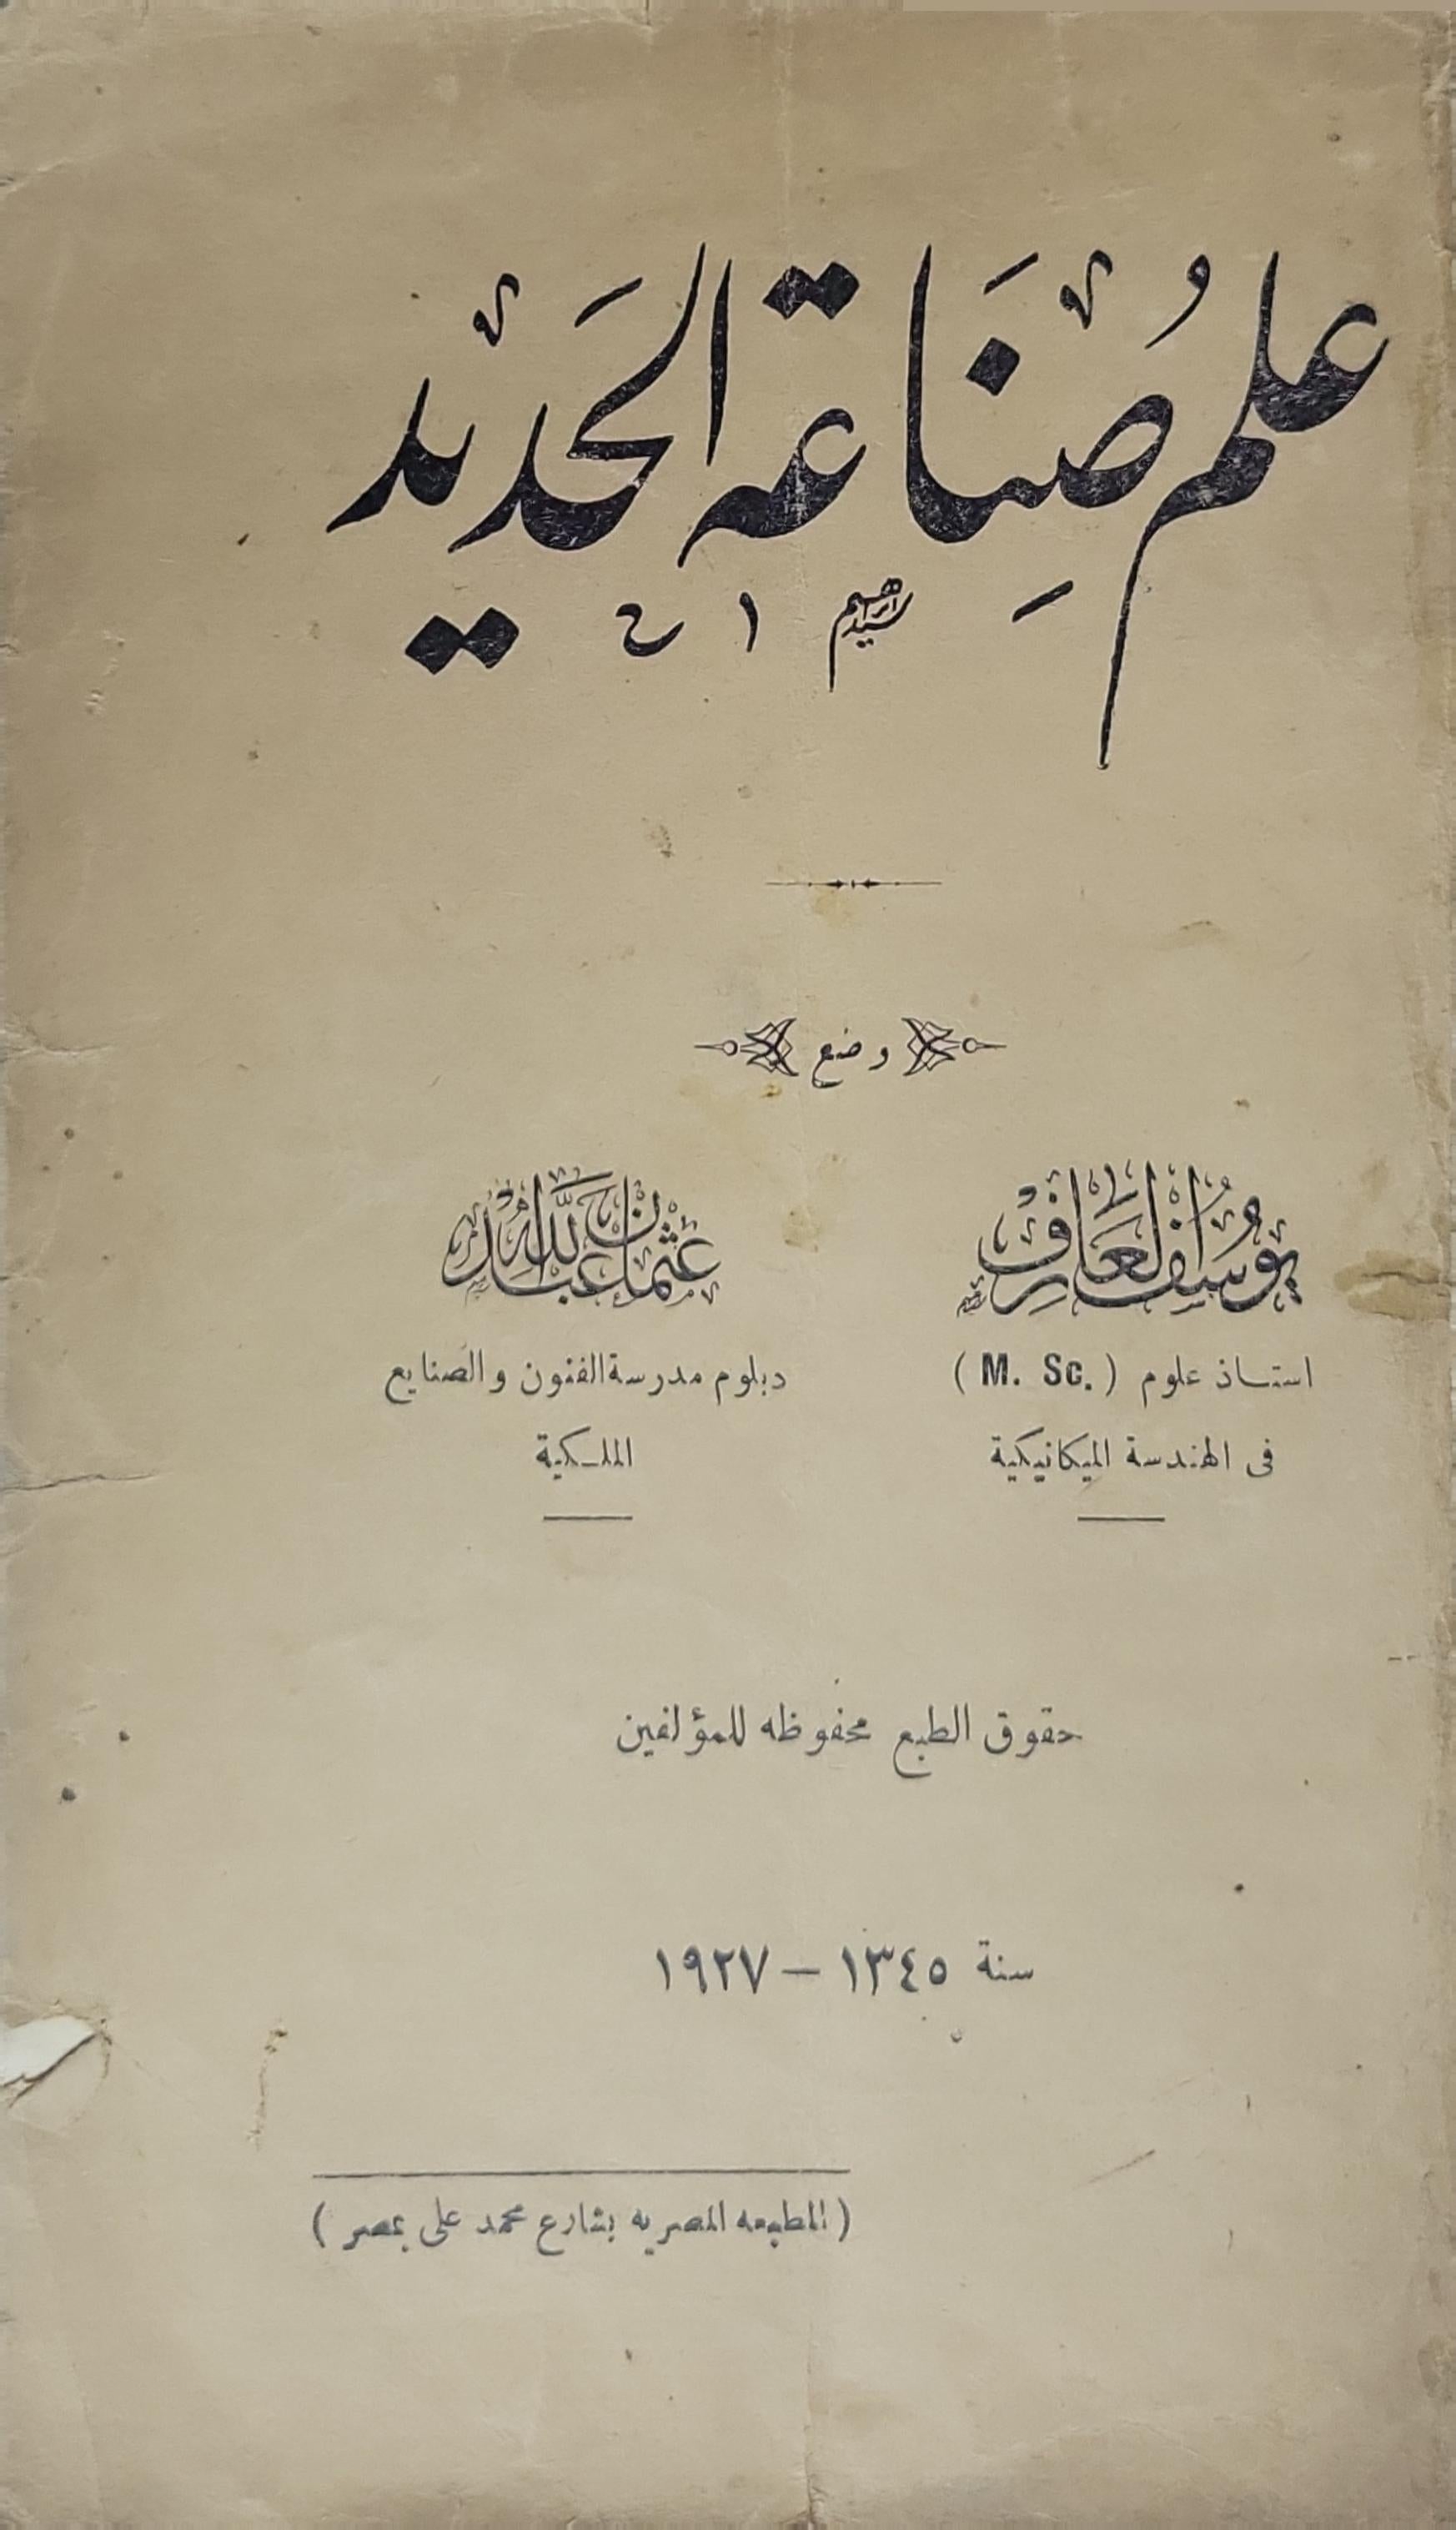 علمُ صِنَاعة الحَديد
سيد ابراهيم
وضع
يوسف العارف
استاذ علوم (M. Sc.)
فى الهندسة الميكانيكية
عثمان عبد الله
دبلوم مدرسة الفنون والصنايع
الملكية
حقوق الطبع محفوظه للمؤلفين
سنة ١٣٤٥ – ١٩٢٧
(المطبعه المصريه بشارع محمد على بمصر)